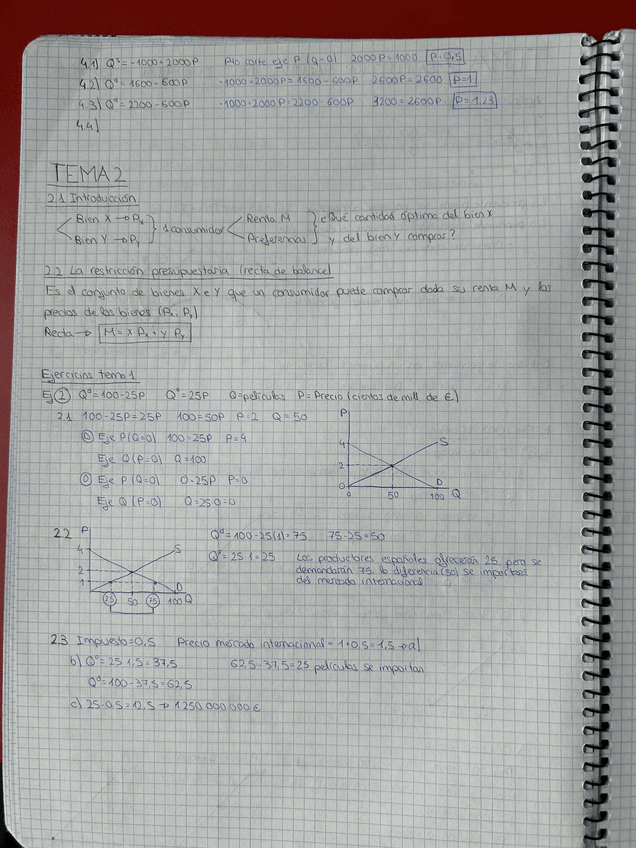 4.1) Qˢ = -1000 + 2000P Pto corte eje P (Q=0) 2000P = 1000 P=0,5
4.2) Qᵈ = 1600 - 600P -1000 + 2000P = 1600 - 600P 2600P = 2600 P=1
4.3) Qᵈ = 2200 - 600P -1000 + 2000P = 2200 - 600P 3200 = 2600P P=1,23
4.4)
TEMA 2
2.1 Introducción
Bien X → Pₓ Renta M ¿Qué cantidad óptima del bien X
1 consumidor
Bien Y → Pᵧ Preferencias y del bien Y compras?
2.2 La restricción presupuestaria (recta de balance)
Es el conjunto de bienes X e Y que un consumidor puede comprar dada su renta M y los
precios de los bienes (Pₓ, Pᵧ)
Recta → M = X·Pₓ + Y Pᵧ
Ejercicios tema 1
Ej 2) Qᵈ = 100 - 25P Qº = 25P Q = películas P = Precio (cientos de mill de €)
2.1. 100 - 25P = 25P 100 = 50P P=2 Q=50
D Eje P (Q=0) 100 = 25P P=4
Eje Q (P=0) Q=100
O Eje P (Q=0) 0 = 25P P=0
Eje Q (P=0) Q=25·0=0
P
4
S
2
0
D
0 50 100 Q
2.2
P
4
S
2
1
D
25 50 75 100 Q
Qᵈ = 100 - 25(1) = 75 75 - 25 = 50
Qº = 25·1 = 25 Los productores españoles ofrecerán 25, pero se
demandarán 75, la diferencia (50) se importará
del mercado internacional
2.3 Impuesto = 0,5 Precio mercado internacional = 1 + 0,5 = 1,5 → a)
b) Qº = 25·1,5 = 37,5 62,5 - 37,5 = 25 películas se importan
Qᵈ = 100 - 37,5 = 62,5
c) 25·0,5 = 12,5 → 1250.000.000 €